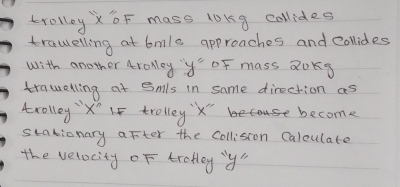 trolley "X" OF mass 10kg collides
trawelling at 6m/s approaches and collides
with another trolley "y" OF mass 20kg
trawelling at 5m/s in same direction as
trolley "X" IF trolley "X" betouse become
stationary after the collision Calculate
the velocity OF trolley "y"